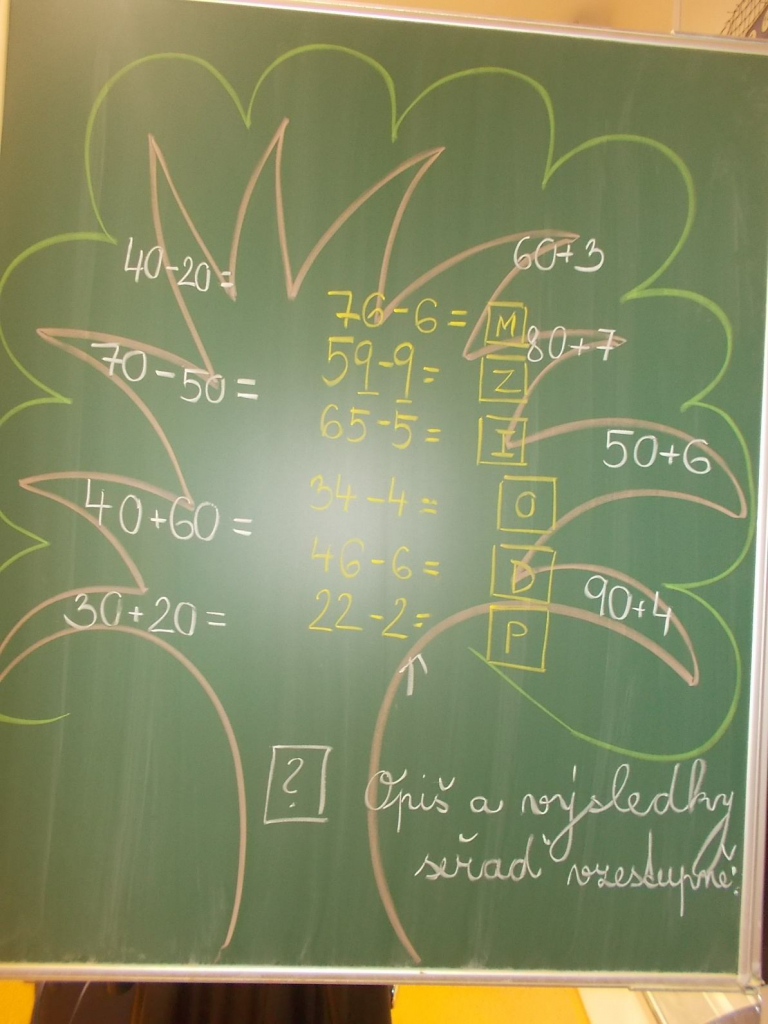 40-20=
70-50=
40+60=
30+20=
76-6= M
59-9= Z
65-5= I
34-4= O
46-6= D
22-2= P
60+3
80+7
50+6
90+4
?
Opiš a výsledky
seřaď vzestupně: